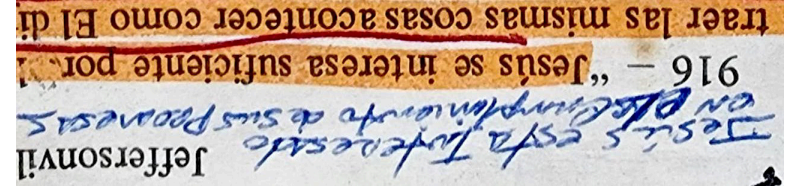 Jeffersonvil
Jesús esta Interesado
en el Cumplimiento de sus Promesas
916 – “Jesús se interesa suficiente por
traer las mismas cosas acontecer como El di